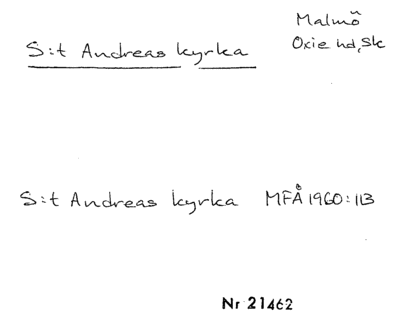 Malmö
S:t Andreas kyrka
Oxie hd, Sk
S:t Andreas kyrka MFÅ 1960:113
Nr 21462